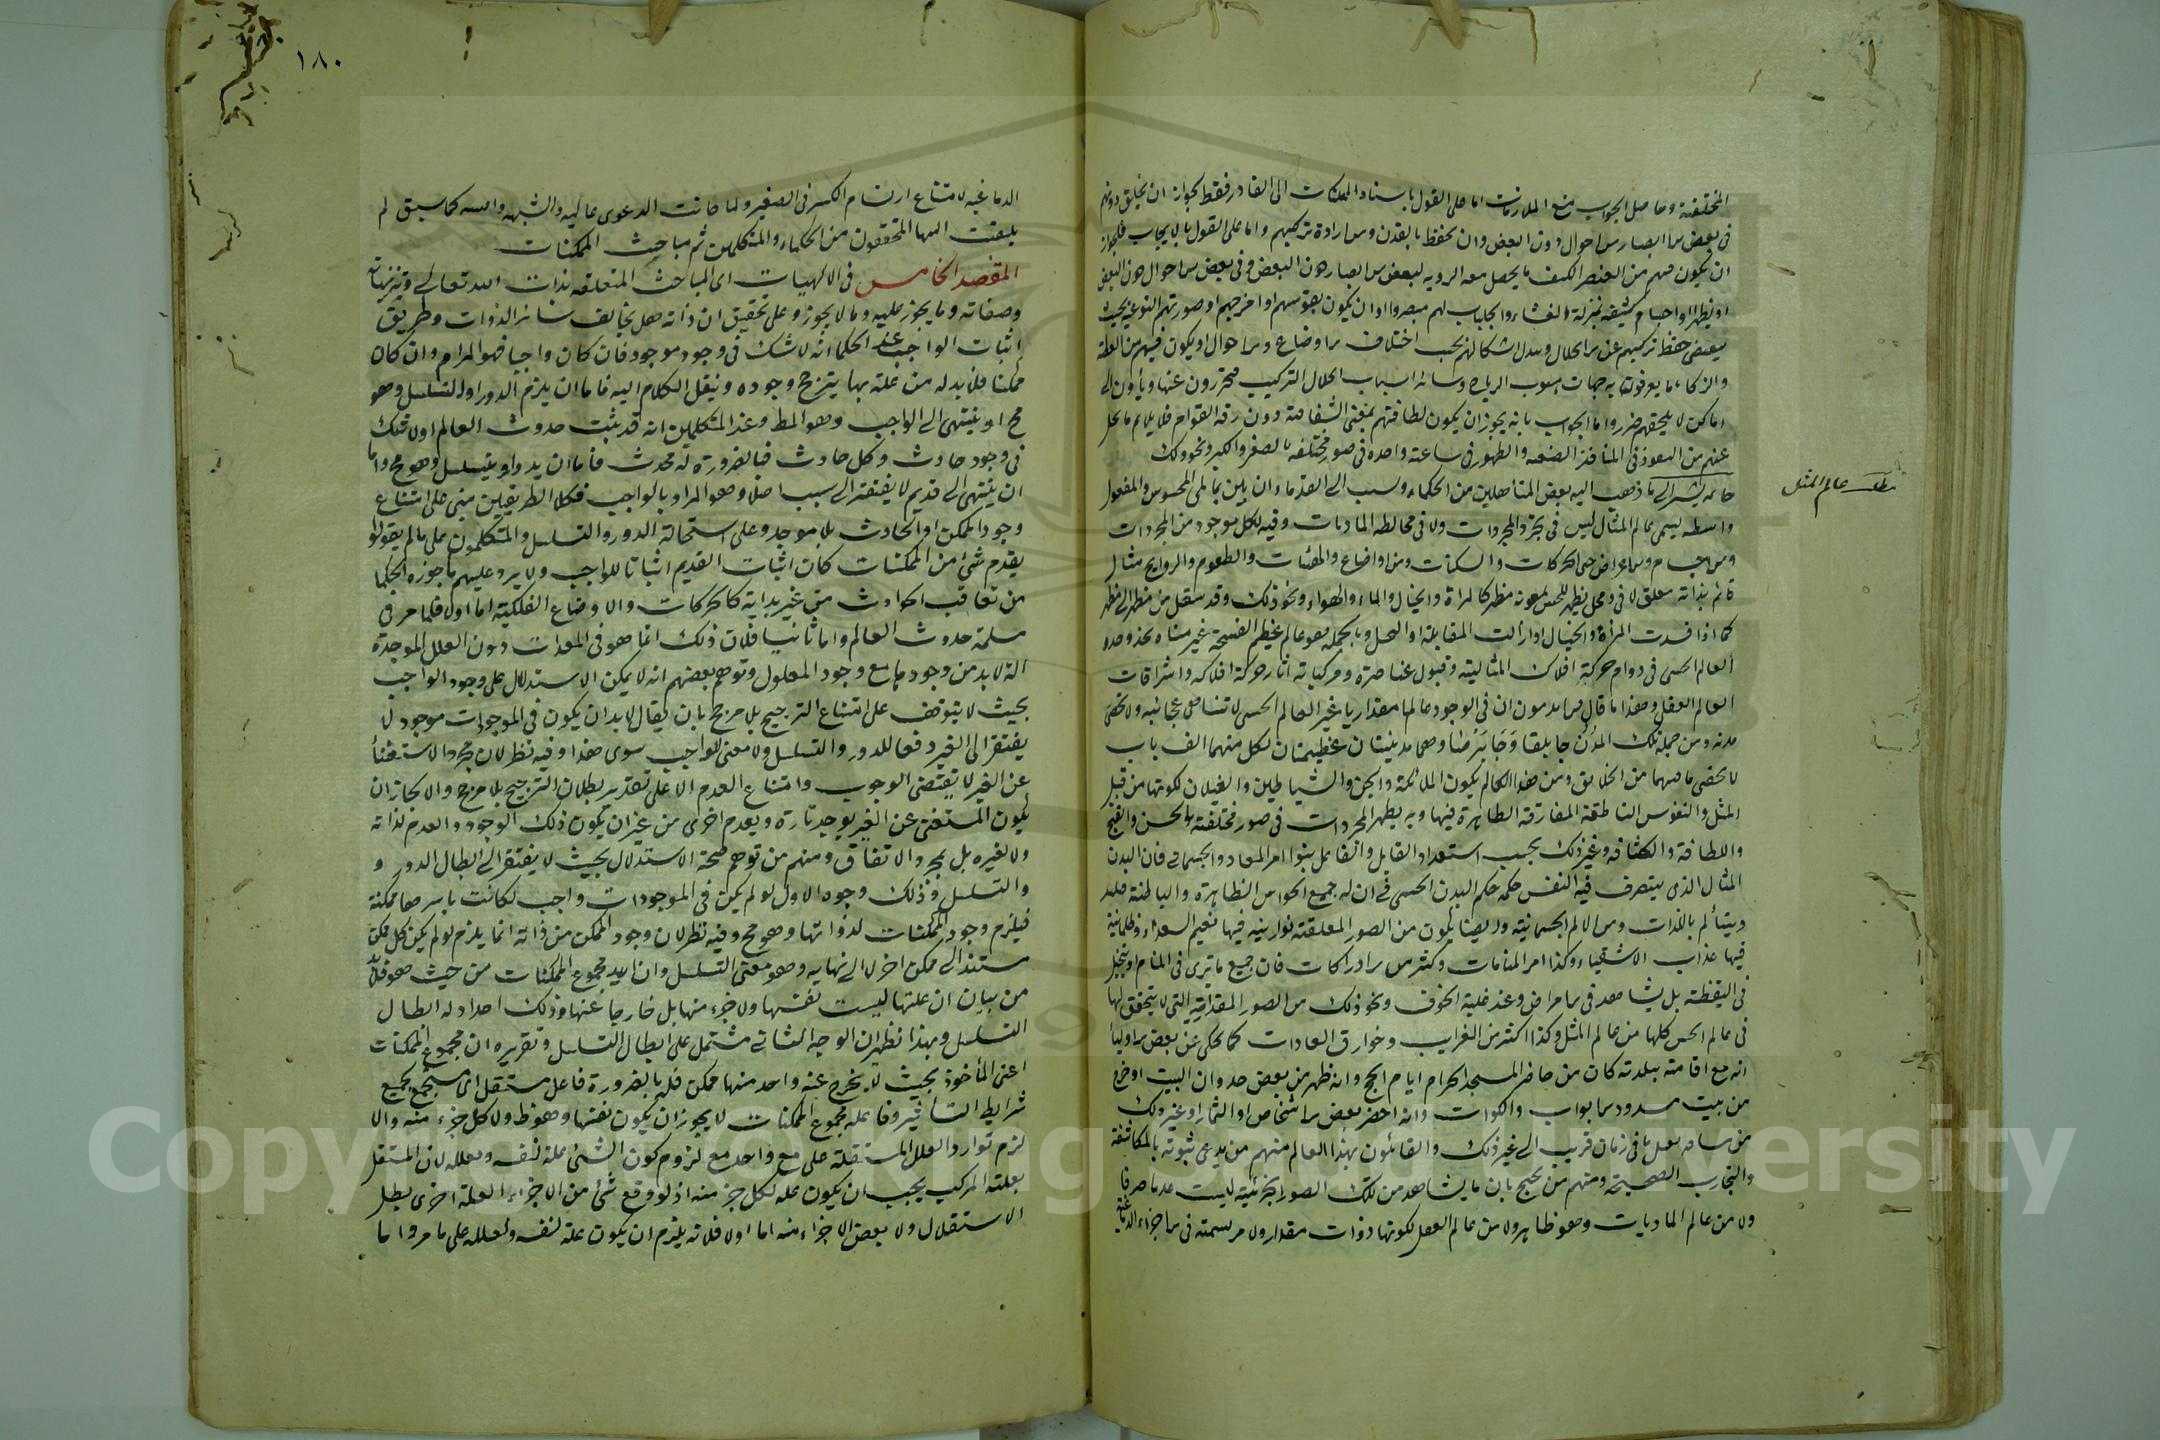 المختلفة وحاصل الجواب منع الملازمات اما على القول باستناد الممكنات الى القادر فقط لجواز ان يخلق رؤيتهم
فى بعض الابصار والاحوال دون البعض وان يحفظ بالقدرة والارادة تركيبهم واما على القول بالايجاب فلجواز
ان يكون فيهم من العنصر الكثيف ما يحصل معه الرويه لبعض الابصار دون البعض وفى بعض الاحوال دون البعض
او يظهروا احيانا فى اجسام كثيفة بمنزلة الغشاء والجلباب لهم فيبصروا او ان يكون نفوسهم او امزجتهم او صورتهم النوعية بحيث
يقتضى حفظ تركيبهم عن الانحلال وتبدل اشكالهم بحسب اختلاف الاوضاع والاحوال او يكون فيهم من الفطنة
والذكاء ما يعرفون به جهات هبوب الرياح وسائر اسباب انحلال التركيب فيحترزون عنها ويأوون الى
اماكن لا يلحقهم ضرر واما الجواب بانه يجوز ان يكون لطافتهم بمعنى الشفافية دون رقة القوام فلا يلايم ما يحكى
عنهم من النفوذ فى المنافذ الضيقة والظهور فى ساعة واحدة فى صور مختلفة بالصغر والكبر ونحو ذلك
خاتمه يشير الى ما ذهب اليه بعض المتألهين من الحكماء ونسب الى القدماء ان بين عالمى المحسوس والمعقول
واسطة يسمى عالم المثال ليس فى تجرد المجردات ولا فى مخالطة الماديات وفيه لكل موجود من المجردات
والاجسام والاعراض حتى الحركات والسكنات والاوضاع والهيئات والطعوم والروايح مثال
قائم بذاته معلق لا فى محل يظهر للحس بمعونة مظهر كالمرآة والخيال والماء والهواء ونحو ذلك وقد ينتقل من مظهر الى مظهر
كما اذا فسدت المرآة والخيال او زالت المقابلة او التخيل وبالجملة هو عالم عظيم الفسحة غير متناه يحذو حذو
العالم الحسى فى دوام حركة افلاكه المثالية وقبول عناصره ومركباته آثار حركة افلاكه واشراقات
العالم العقلى وهذا ما قال الاقدمون ان فى الوجود عالما مقداريا غير العالم الحسى لا تتناهى عجائبه ولا تحصى
مدنه ومن جملة تلك المدن جابلقا وجابرصا وهما مدينتان عظيمتان لكل منهما الف باب
لا يحصى ما فيهما من الخلايق ومن هذا العالم يكون الملائكة والجن والشياطين والغيلان لكونها من قبيل
المثل والنفوس الناطقة المفارقة الظاهرة فيها وبه يظهر المجردات فى صور مختلفة بالحسن والقبح
واللطافة والكثافة وغير ذلك بحسب استعداد القابل والفاعل وبنوا امر المعاد الجسمانى فان البدن
المثالى الذى يتصرف فيه النفس حكمه حكم البدن الحسى فى ان له جميع الحواس الظاهرة والباطنة فيلتذ
ويتألم باللذات والآلام الجسمانية وايضا يكون من الصور المعلقة نورانية فيها نعيم السعداء وظلمانية
فيها عذاب الاشقياء وكذا امر المنامات وكثير من الادراكات فان جميع ما يرى فى المنام او يتخيل
فى اليقظة بل يشاهد فى الامراض وعند غلبة الخوف ونحو ذلك من الصور المقدارية التى لا يتحقق لها
فى عالم الحس كلها من عالم المثل وكذا كثير من الغرايب وخوارق العادات كما يحكى عن بعض الاوليا
انه مع اقامته ببلدته كان من حاضر المسجد الحرام ايام الحج وانه ظهر من بعض جدران البيت او خرج
من بيت مسدود الابواب والكوات وانه احضر بعض الاشخاص او الثمار او غير ذلك
من مسافة بعيدة فى زمان قريب الى غير ذلك والقائلون بهذا العالم منهم من يدعى ثبوته بالمكاشفة
والتجارب الصحيحة ومنهم من يحتج بان ما يشاهد من تلك الصور الجزئية ليست عدما صرفا
ولا من عالم الماديات وهو ظاهر ولا من عالم العقل لكونها ذوات مقدار ولا مرتسمة فى الاجزاء الدماغية
مطلب عالم المثل
١٨٠
الدماغية لامتناع ارتسام الكبير فى الصغير ولما كانت الدعوى عالية والشبهة واهية كما سبق لم
يلتفت اليها المحققون من الحكماء والمتكلمين تم مباحث الممكنات
المقصد الخامس فى الالهيات اى المباحث المتعلقة بذات الله تعالى وتنزيهاته
وصفاته وما يجوز عليه وما لا يجوز وعلى تحقيق ان ذاته هل يخالف سائر الذوات وطريق
اثبات الواجب عند الحكما انه لا شك فى وجود موجود فان كان واجبا فهو المرام وان كان
ممكنا فلا بد له من علة بها يترجح وجوده وينقل الكلام اليه فاما ان يلزم الدور او التسلسل وهو
مح او ينتهى الى الواجب وهو المط وعند المتكلمين انه قد ثبت حدوث العالم اولا شك
فى وجود حادث وكل حادث فبالضرورة له محدث فاما ان يدور او يتسلسل وهو مح واما
ان ينتهى الى قديم لا يفتقر الى سبب اصلا وهو المراد بالواجب فكلا الطريقين مبنى على امتناع
وجود الممكن او الحادث بلا موجد وعلى استحالة الدور والتسلسل والمتكلمون على ما لم يقولوا
بقدم شئ من الممكنات كان اثبات القديم اثباتا للواجب ولا يرد عليهم ما جوزه الحكما
من تعاقب الحوادث من غير بداية كالحركات والاوضاع الفلكية اما اولا فلما مر فى
مسلمة حدوث العالم واما ثانيا فلان ذلك انما هو فى المعدات دون العلل الموجدة
التى لا بد من وجودها مع وجود المعلول وتوهم بعضهم انه لا يمكن الاستدلال على وجود الواجب
بحيث لا يتوقف على امتناع الترجيح بلا مرجح بان يقال لا بد ان يكون فى الموجودات موجود لا
يفتقر الى الغير دفعا للدور والتسلسل ولا معنى للواجب سوى هذا وفيه نظر لان مجرد الاستغناء
عن الغير لا يقتضى الوجوب وامتناع العدم الا على تقدير بطلان الترجيح بلا مرجح والا لجاز ان
يكون المستغنى عن الغير يوجد تارة ويعدم اخرى من غير ان يكون ذلك الوجود والعدم لذاته
ولا لغيره بل بمجرد الاتفاق ومنهم من توهم صحة الاستدلال بحيث لا يفتقر الى ابطال الدور و
والتسلسل وذلك وجوه الاول لو لم يكن فى الموجودات واجب لكانت باسرها ممكنة
فيلزم وجود الممكنات لذواتها وهو مح وفيه نظر لان وجود الممكن من ذاته انما يلزم لو لم يكن كل ممكن
مستندا الى ممكن اخر لا الى نهاية وهو معنى التسلسل وان اريد مجموع الممكنات من حيث هو فلا بد
من بيان ان علتها ليست نفسها ولا جزء منها بل خارجا عنها وذلك احد ادلة ابطال
التسلسل وبهذا يظهر ان الوجه الثانى مشتمل على ابطال التسلسل وتقريره ان مجموع الممكنات
اعنى المأخوذ بحيث لا يخرج عنه واحد منها ممكن فله بالضرورة فاعل مستقل اى مستجمع لجميع
شرايط التأثير وفاعل مجموع الممكنات لا يجوز ان يكون نفسها وهو ظ ولا كل جزء منه والا
لزم توارد العلل المستقلة على مع واحد مع لزوم كون الشئ علة لنفسه ولعلله لان المستقل
بعلية المركب يجب ان يكون علة لكل جزء منه اذ لو وقع شئ من الاجزاء لعلة اخرى بطل
الاستقلال ولا بعض الاجزاء منه اما اولا فلانه يلزم ان يكون علة لنفسه ولعلله على ما مر واما